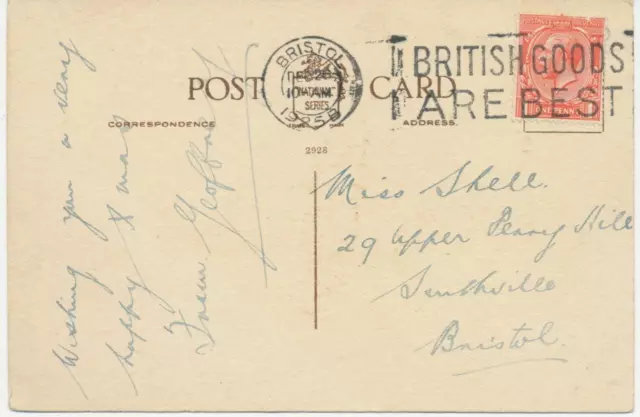 BRISTOL
DEC 26
10 AM
1925
BRITISH GOODS
ARE BEST
POST CARD
SERIES
CORRESPONDENCE
ADDRESS.
2928
Wishing you a very
happy Xmas
From Geoffrey
Miss Shell.
29 Upper Perry Hill
Southville
Bristol.